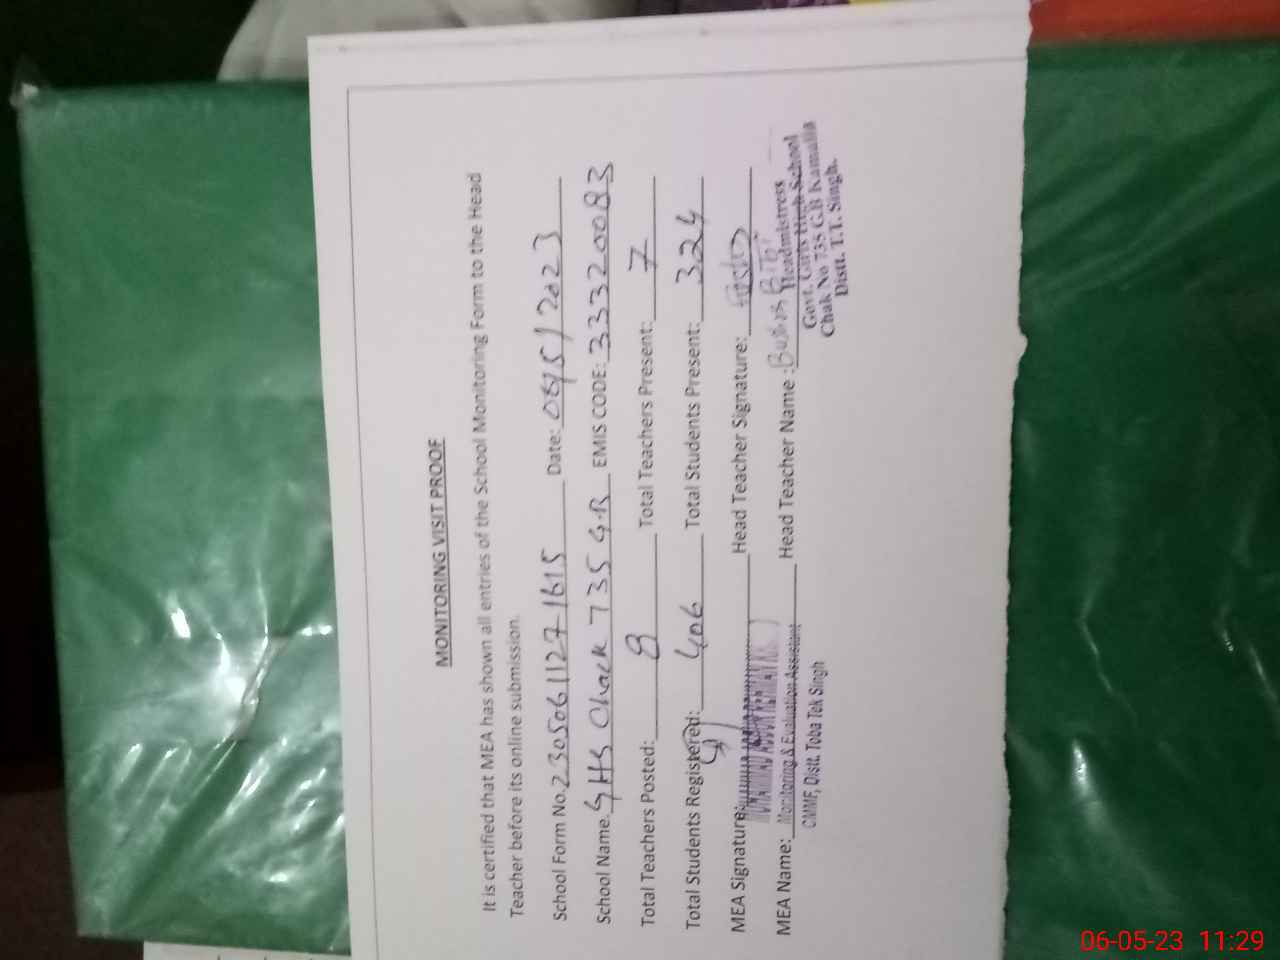 MONITORING VISIT PROOF
It is certified that MEA has shown all entries of the School Monitoring Form to the Head
Teacher before its online submission.
School Form No. 2305061127-1615 Date: 06/5/2023
School Name: GHS Chack 735 G.B EMIS CODE: 33320083
Total Teachers Posted: 8 Total Teachers Present: 7
Total Students Registered: 406 Total Students Present: 324
MEA Signature: Head Teacher Signature:
MEA Name: Monitoring & Evaluation Assistant Head Teacher Name : Bushra Bibi
CMMF, Distt. Toba Tek Singh
Headmistress
Govt. Girls High School
Chak No 735 G.B Kamalia
Distt. T.T. Singh.
06-05-23 11:29